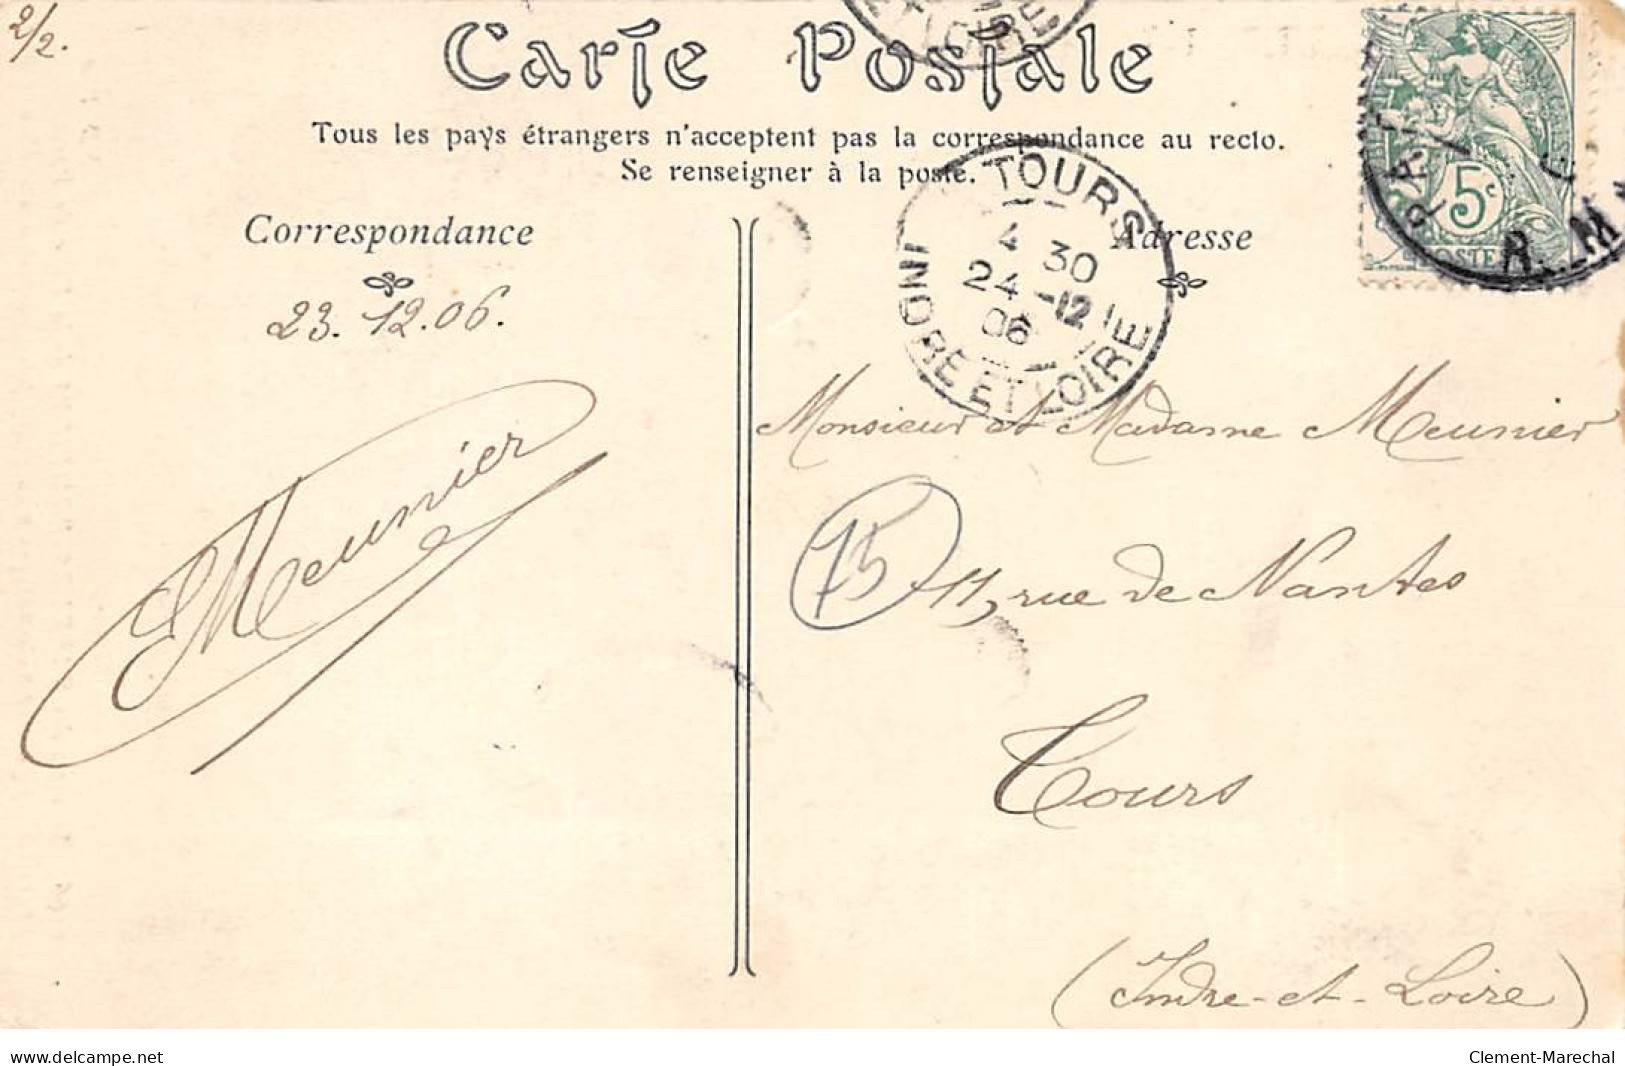 2/2.
Carte Postale
Tous les pays étrangers n'acceptent pas la correspondance au recto.
Se renseigner à la poste.
Correspondance
Adresse
23.12.06.
TOURS
4 30
24 -12
06
INDRE ET LOIRE
5c
POSTE
PARIS
R. M
Monsieur et Madame Meunier
EMeunier
15
11, rue de Nantes
Tours
(Indre-et-Loire)
www.delcampe.net
Clement-Marechal